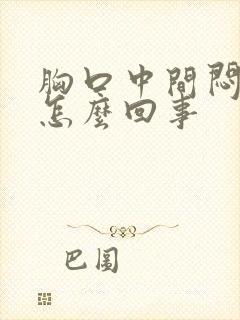 胸口中間悶
怎麼回事
巴圖